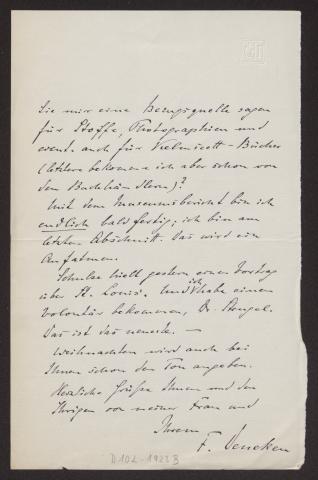 Sie mir eine Bezugsquelle sagen
für Stoffe, Photographien und
event. auch für Kelmscott-Bücher
(letztere bekomme ich aber schon von
den Buchhändlern)?
Mit dem Museumsbericht bin ich
endlich bald fertig; ich bin am
letzten Abschnitt. Das wird ein
Aufatmen.
Schulze hielt gestern einen Vortrag
über St. Louis. Und ich habe einen
Volontär bekommen, Dr. Stengel.
Das ist das neueste. —
Weihnachten wird auch bei
Ihnen schon den Ton angeben.
Herzliche Grüße Ihnen und den
Ihrigen von meiner Frau und
Ihrem
F. Deneken
D 102-1922 B